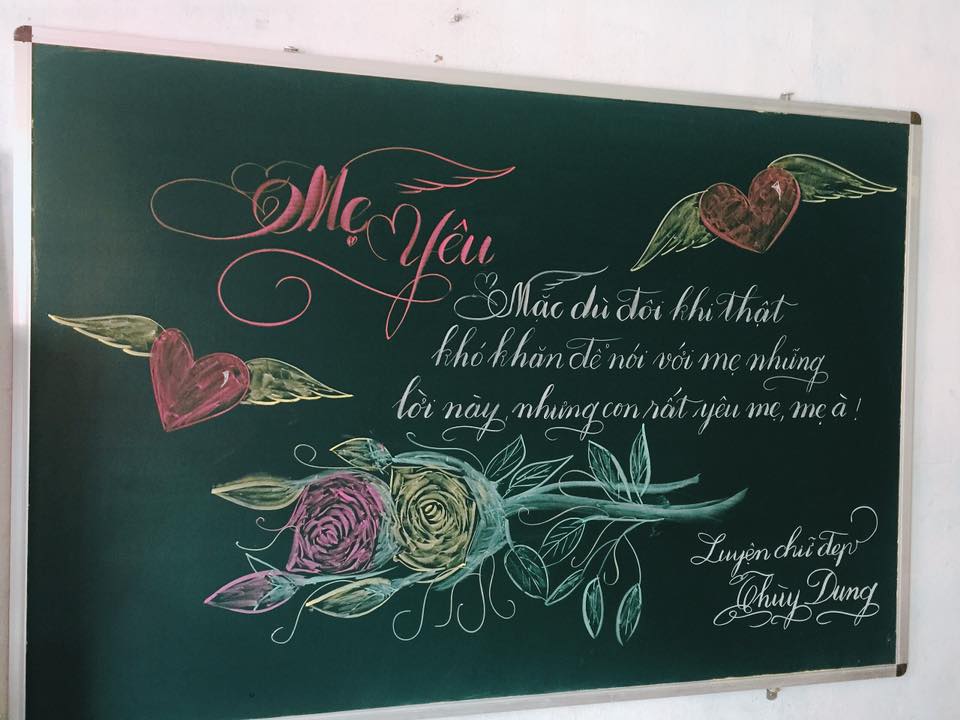 Mẹ
Yêu
Mặc dù đôi khi thật
khó khăn để nói với mẹ những
lời này, nhưng con rất yêu mẹ, mẹ à!
Luyện chữ đẹp
Thùy Dung